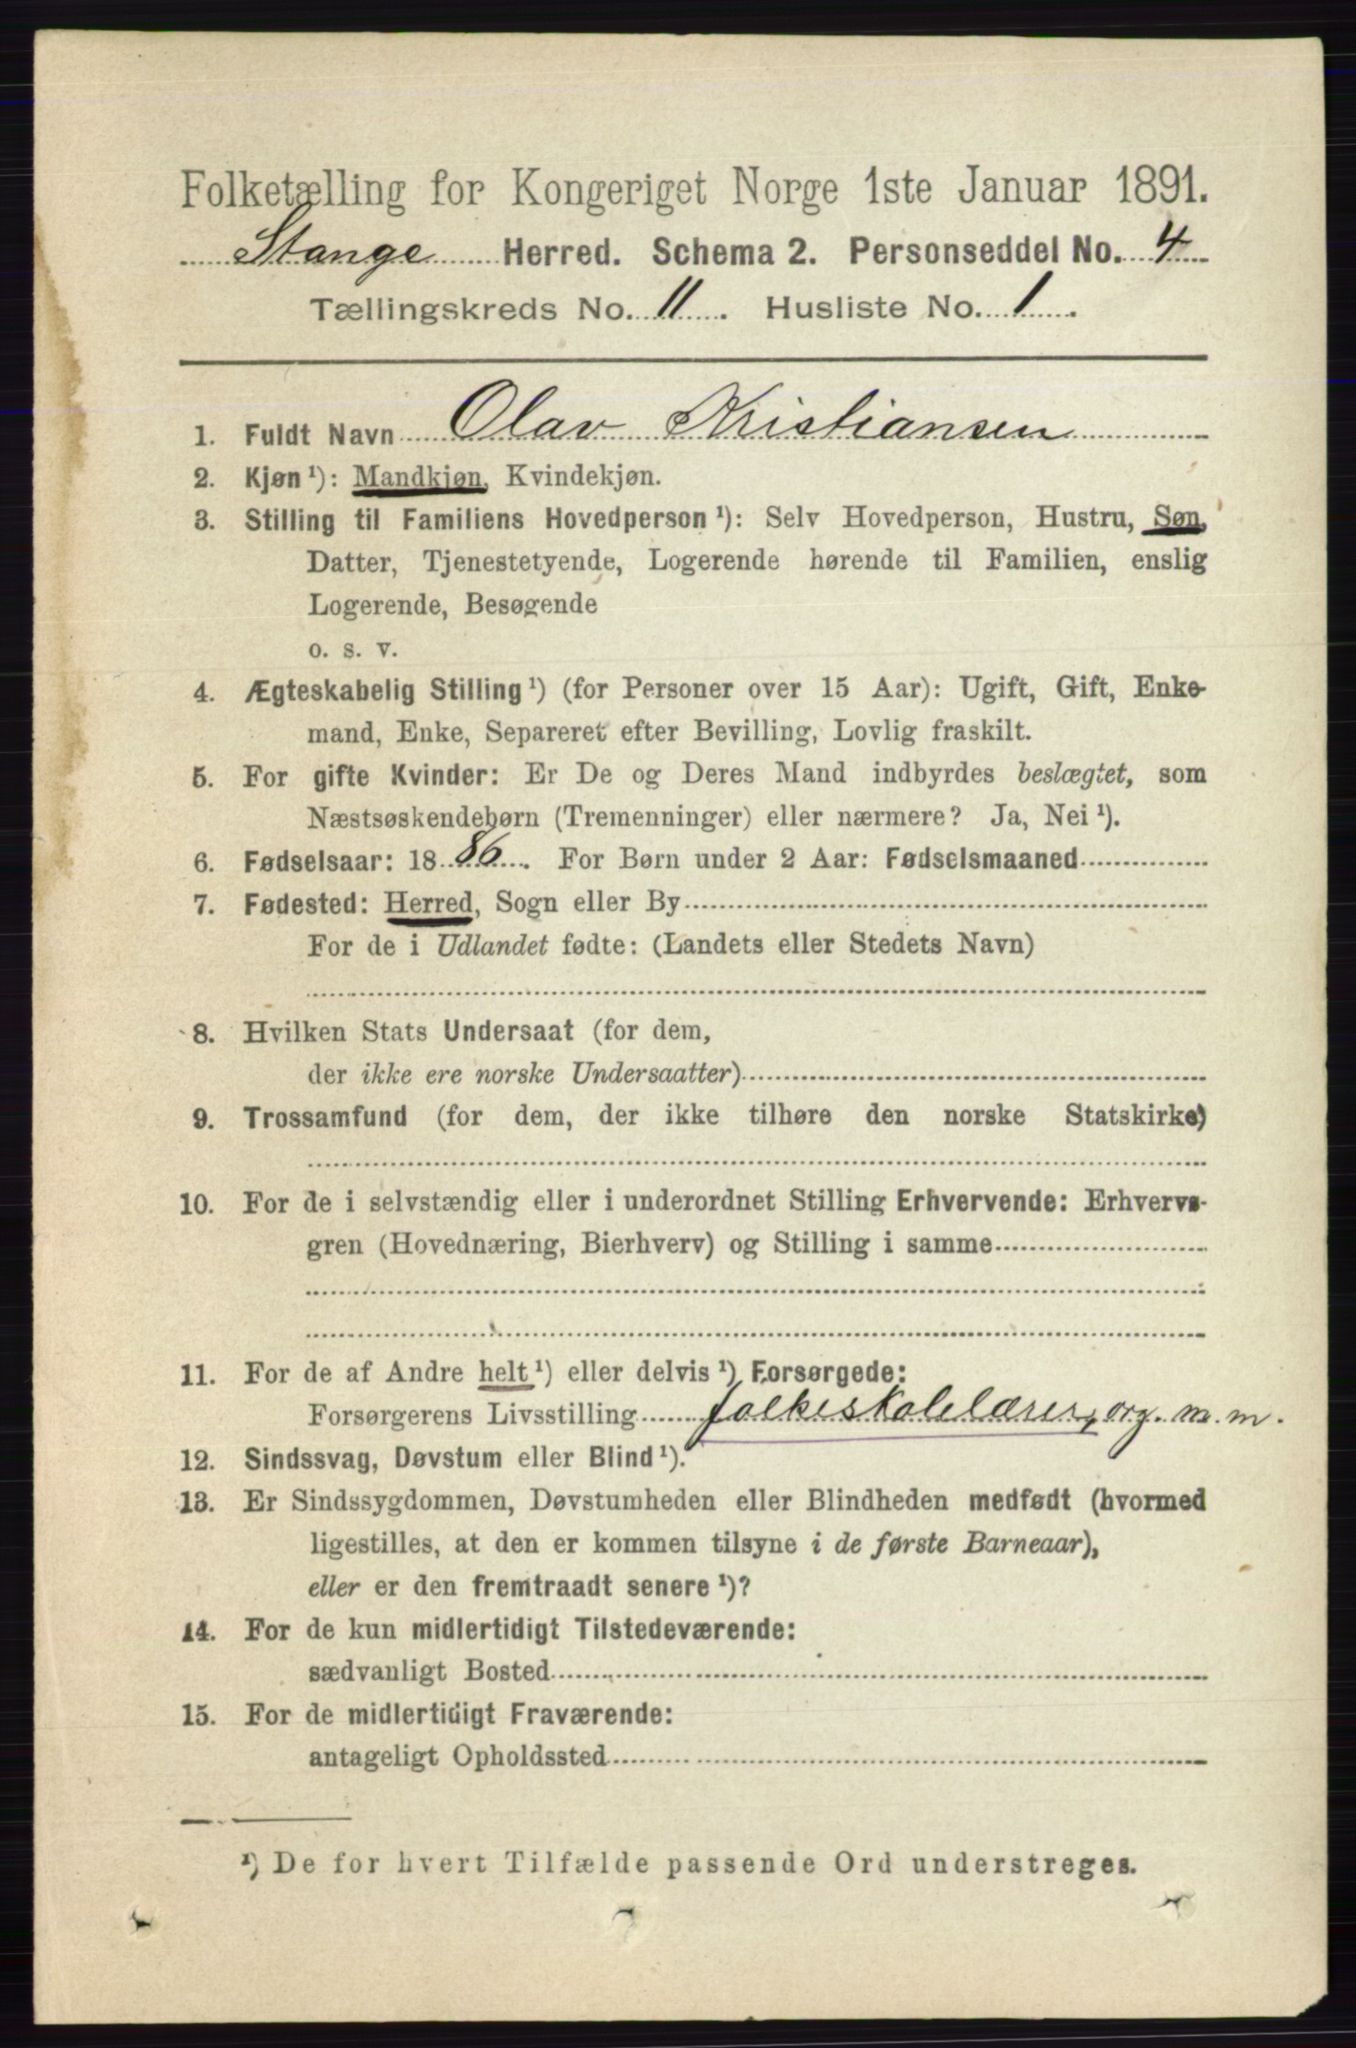 Folketælling for Kongeriget Norge 1ste Januar 1891.
Stange Herred. Schema 2. Personseddel No. 4
Tællingskreds No. 11. Husliste No. 1.
1. Fuldt Navn Olav Kristiansen
2. Kjøn ¹): Mandkjøn, Kvindekjøn.
3. Stilling til Familiens Hovedperson ¹): Selv Hovedperson, Hustru, Søn,
Datter, Tjenestetyende, Logerende hørende til Familien, enslig
Logerende, Besøgende
o. s. v.
4. Ægteskabelig Stilling ¹) (for Personer over 15 Aar): Ugift, Gift, Enke-
mand, Enke, Separeret efter Bevilling, Lovlig fraskilt.
5. For gifte Kvinder: Er De og Deres Mand indbyrdes beslægtet, som
Næstsøskendebørn (Tremenninger) eller nærmere? Ja, Nei ¹).
6. Fødselsaar: 1886. For Børn under 2 Aar: Fødselsmaaned
7. Fødested: Herred, Sogn eller By
For de i Udlandet fødte: (Landets eller Stedets Navn)
8. Hvilken Stats Undersaat (for dem,
der ikke ere norske Undersaatter)
9. Trossamfund (for dem, der ikke tilhøre den norske Statskirke)
10. For de i selvstændig eller i underordnet Stilling Erhvervende: Erhvervs-
gren (Hovednæring, Bierhverv) og Stilling i samme
11. For de af Andre helt ¹) eller delvis ¹) Forsørgede:
Forsørgerens Livsstilling folkeskolelærer, org. m. m.
12. Sindssvag, Døvstum eller Blind ¹).
13. Er Sindssygdommen, Døvstumheden eller Blindheden medfødt (hvormed
ligestilles, at den er kommen tilsyne i de første Barneaar),
eller er den fremtraadt senere ¹)?
14. For de kun midlertidigt Tilstedeværende:
sædvanligt Bosted
15. For de midlertidigt Fraværende:
antageligt Opholdssted
¹) De for hvert Tilfælde passende Ord understreges.